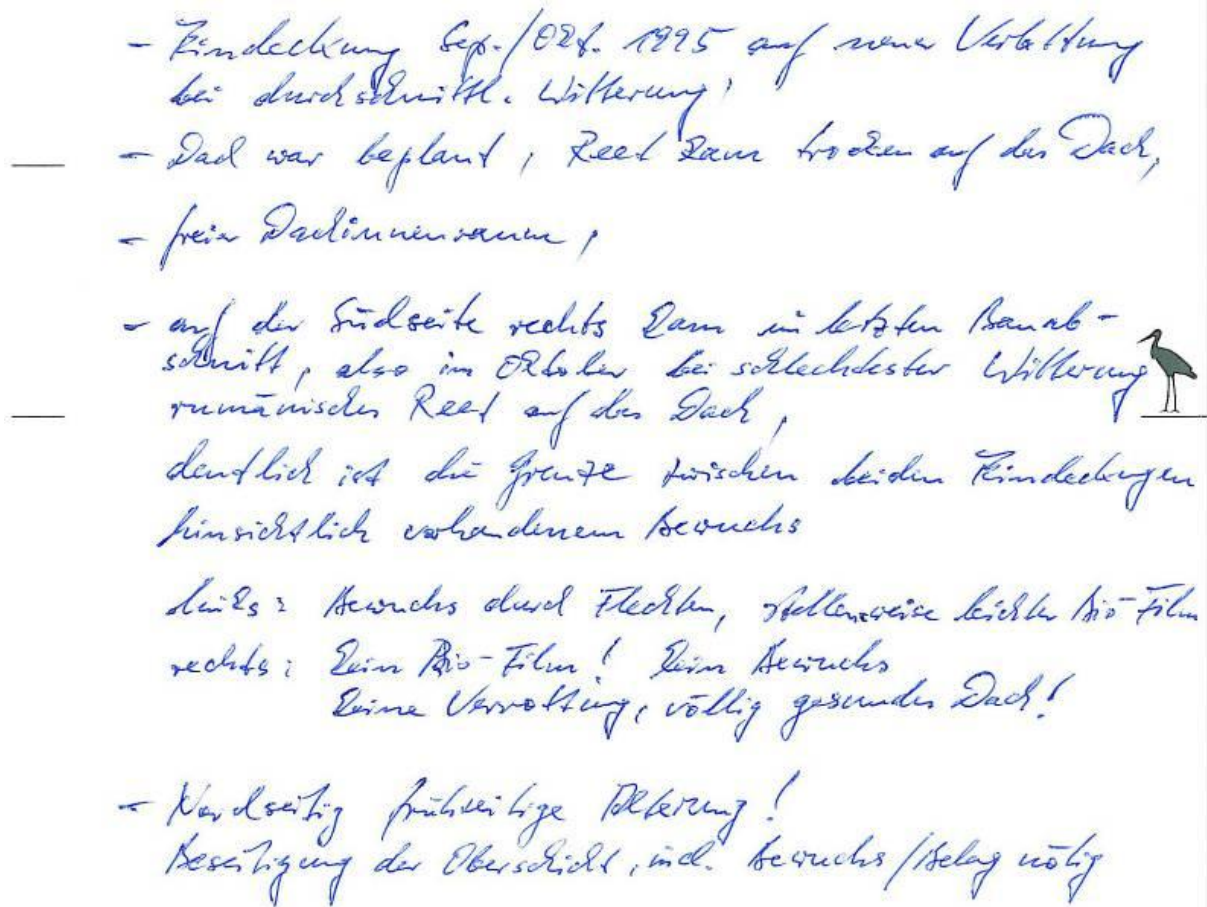 - Eindeckung Sep./Okt. 1995 auf neuer Verlattung
bei durchschnittl. Witterung,
- Dach war beplant, Reet kam trocken auf das Dach,
- freier Dachinnenraum,
- auf der Südseite rechts kam im letzten Bauab-
schnitt, also im Oktober bei schlechtester Witterung
rumänisches Reet auf das Dach,
deutlich ist die Grenze zwischen beiden Eindeckungen
hinsichtlich vorhandenem Bewuchs
links: Bewuchs durch Flechten, stellenweise leichter Bio-Film
rechts: kein Bio-Film! kein Bewuchs
keine Verrottung, völlig gesundes Dach!
- Nordseitig frühzeitige Alterung!
Beseitigung der Oberschicht, incl. Bewuchs/Belag nötig